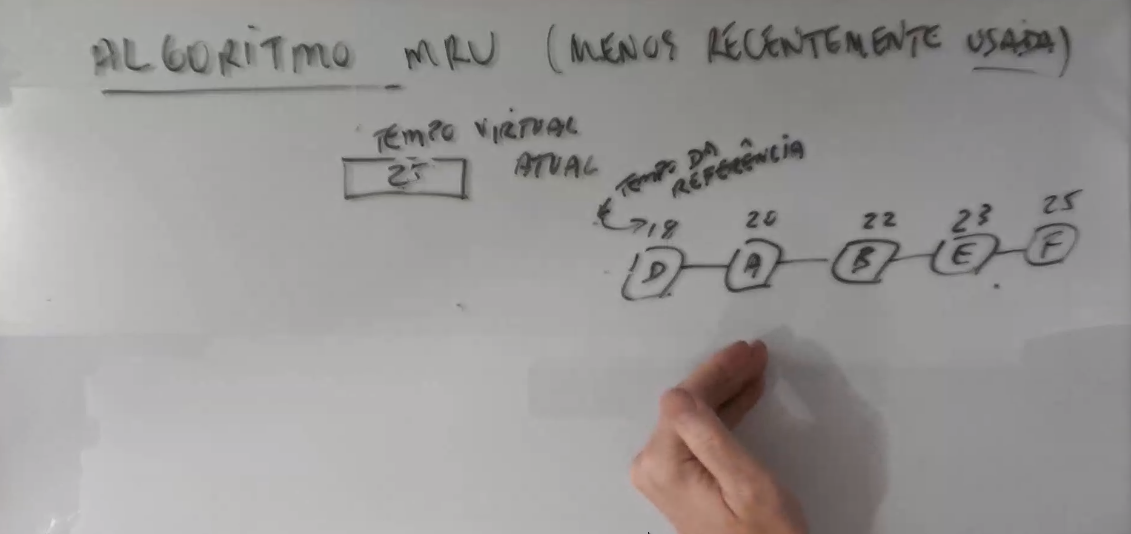 ALGORITMO MRU (MENOS RECENTEMENTE USADA)
TEMPO VIRTUAL
ATUAL
25
TEMPO DA
REFERÊNCIA
18 20 22 23 25
D A B E F